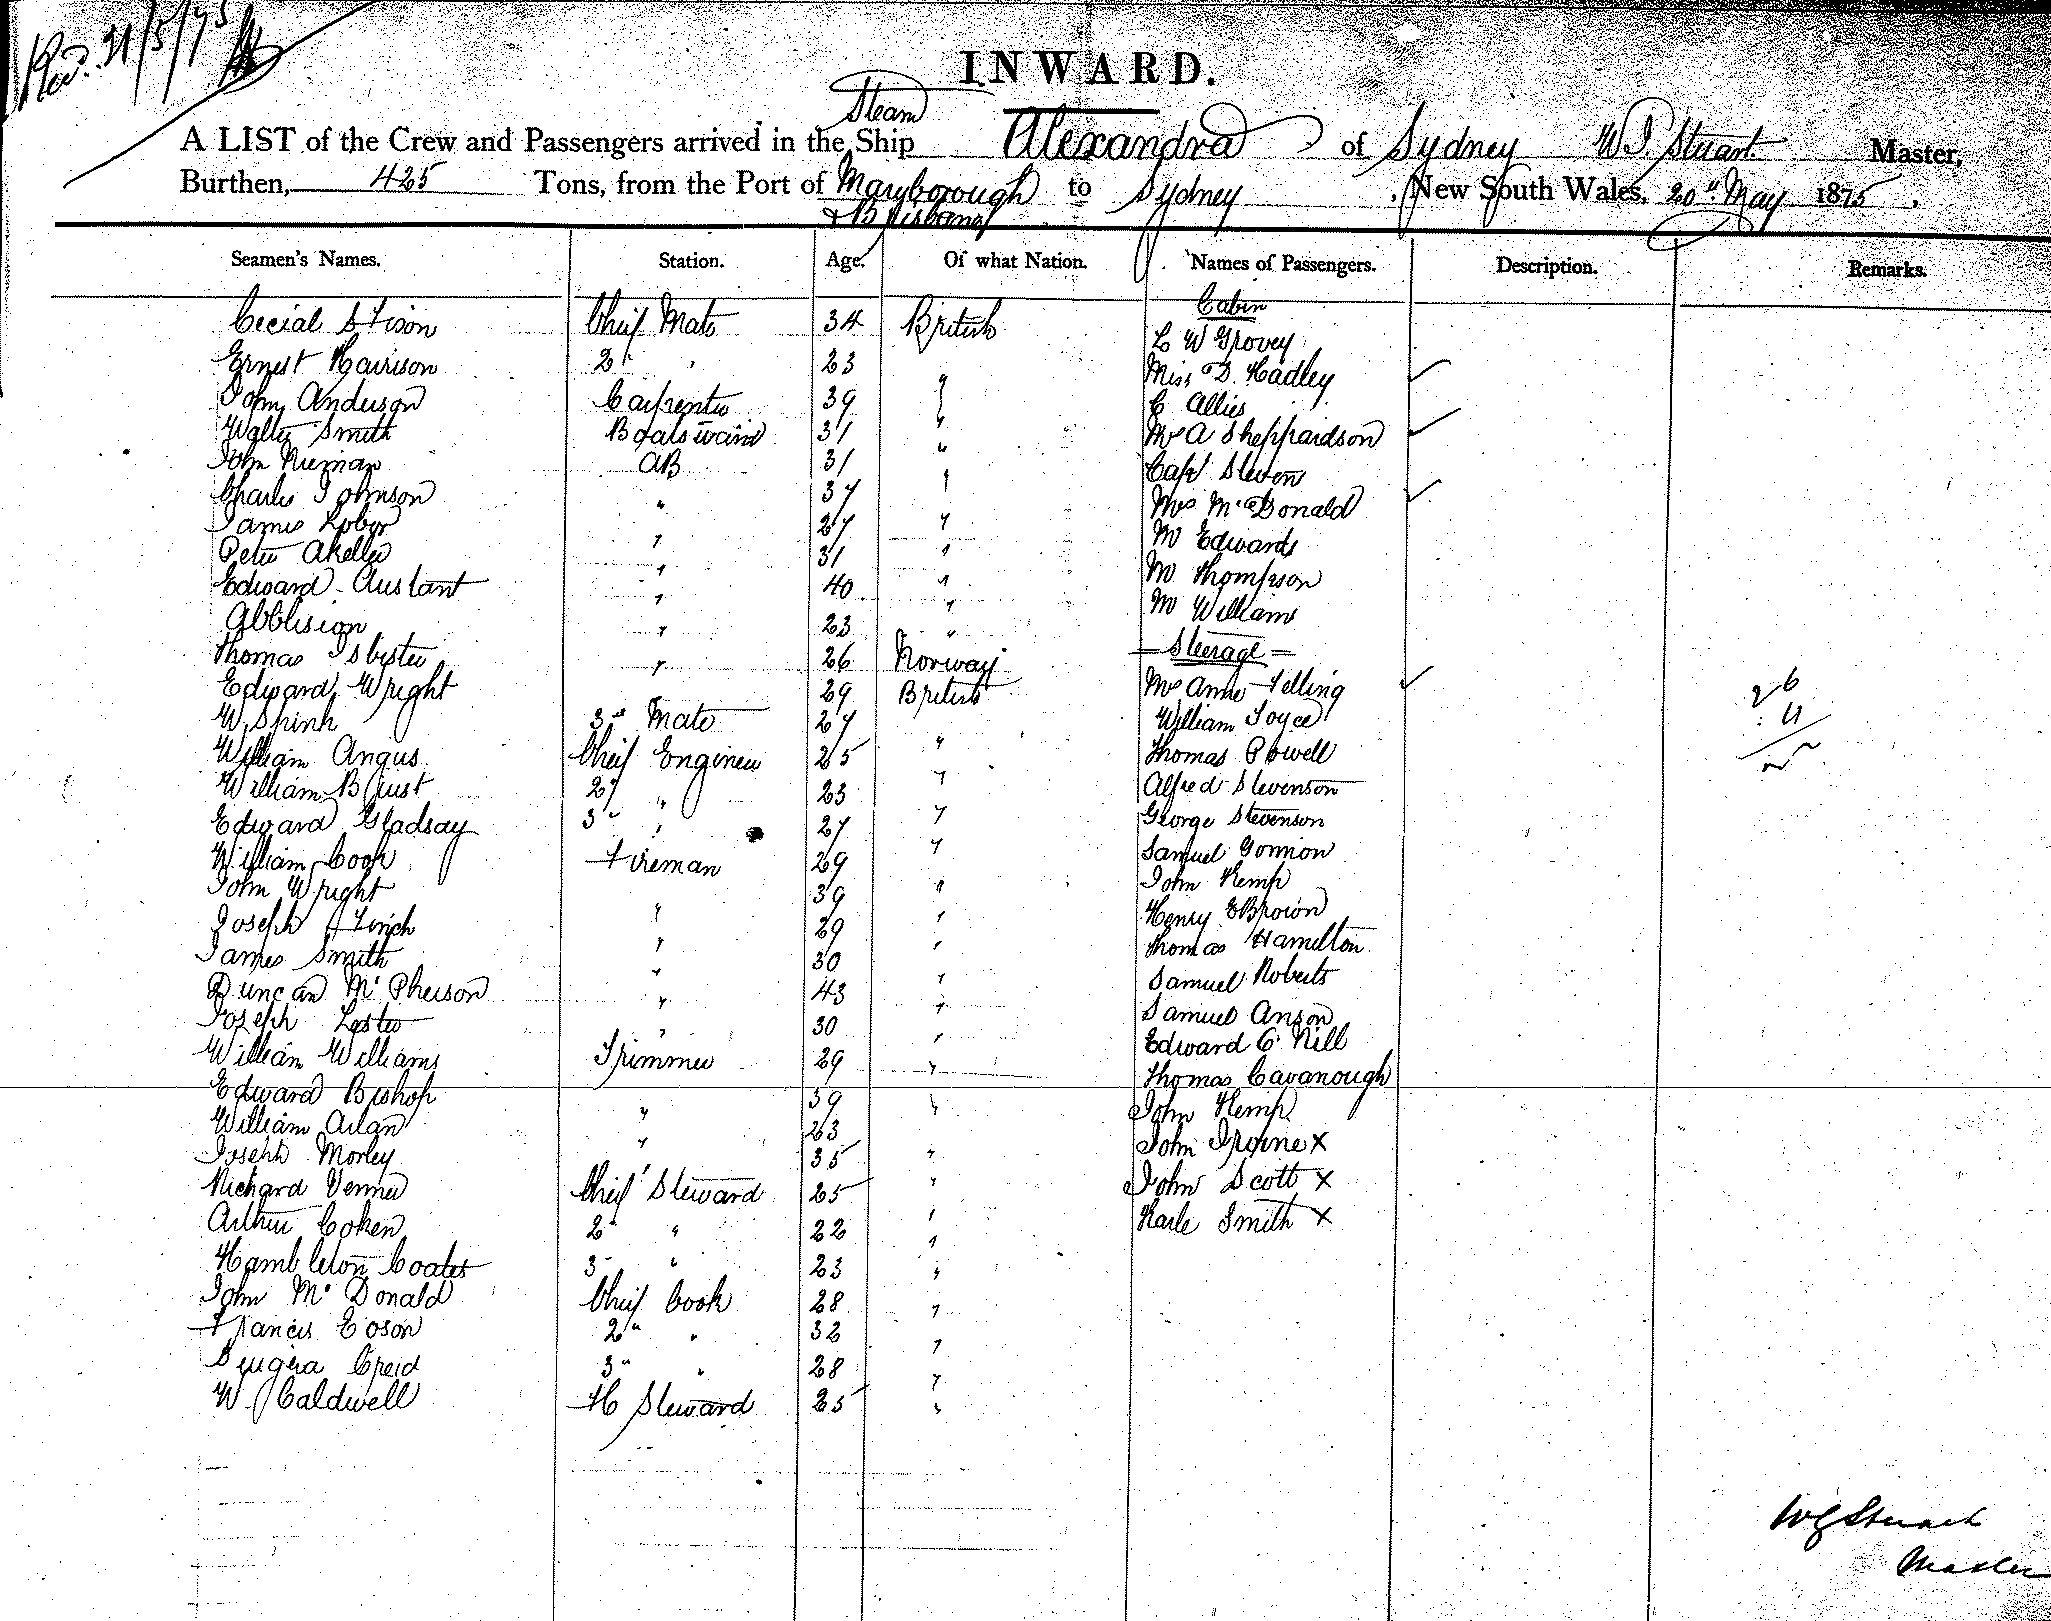 Rcd. 31/5/75
INWARD.
Steam
A LIST of the Crew and Passengers arrived in the Ship Alexandra of Sydney W J Stuart Master,
Burthen, 425 Tons, from the Port of Maryborough to Sydney, New South Wales, 20th May 1875.
& Brisbane
Seamen's Names. Station. Age. Of what Nation. Names of Passengers. Description. Remarks.
Cabin
Cecial S Fison Chief Mate 34 British
L W Grovey
Ernest Harrison 2d " 23 "
Miss D. Hadley
John Anderson Carpenter 39 "
C Allies
Walter Smith Boatswain 31 "
Mrs A Sheppardson
John Nieman AB 31 "
Capt Steven
Charles Johnson " 37 "
Mrs McDonald
James " 27 "
Mr Edwards
Peter Akeller " 31 "
Mr Thompson
Edward Austant " 40 "
Mr Williams
" 23 "
- Steerage -
Thomas Isbister " 26 Norway
Edward Wright " 29 British
Mrs Anne Felling
W. Spink 3rd Mate 27
William Joyce
William Angus Chief Engineer 25 "
Thomas Powell
William B Just 2d " 23 "
Alfred Stevenson
Edward Gladsay 3d " 27 "
George Stevenson
William Cook Fireman 29 "
Samuel Gonnon
John Wright 39 "
John Kemp
Joseph Finch " 29 "
Henry E Brown
James Smith " 30 "
Thomas Hamilton
Duncan McPherson " 43 "
Samuel Roberts
Joseph Lester " 30 "
Samuel Anson
William Williams Trimmer 29 "
Edward C Nill
Thomas Cavanough
Edward Bishop " 39 "
John Kemp
William Arlan " 23
John Irvine X
Joseph Morley 35 "
John Scott X
Richard Venner Chief Steward 25 "
Karle Smith X
Arthur Coken 2d " 22 "
Hambleton Coates 3d " 23 "
John McDonald Chief Cook 28 "
Francis Eoson 2d " 32 "
Creid 3d " 28 "
W Caldwell H Steward 25 "
26
W J Stuart
Master